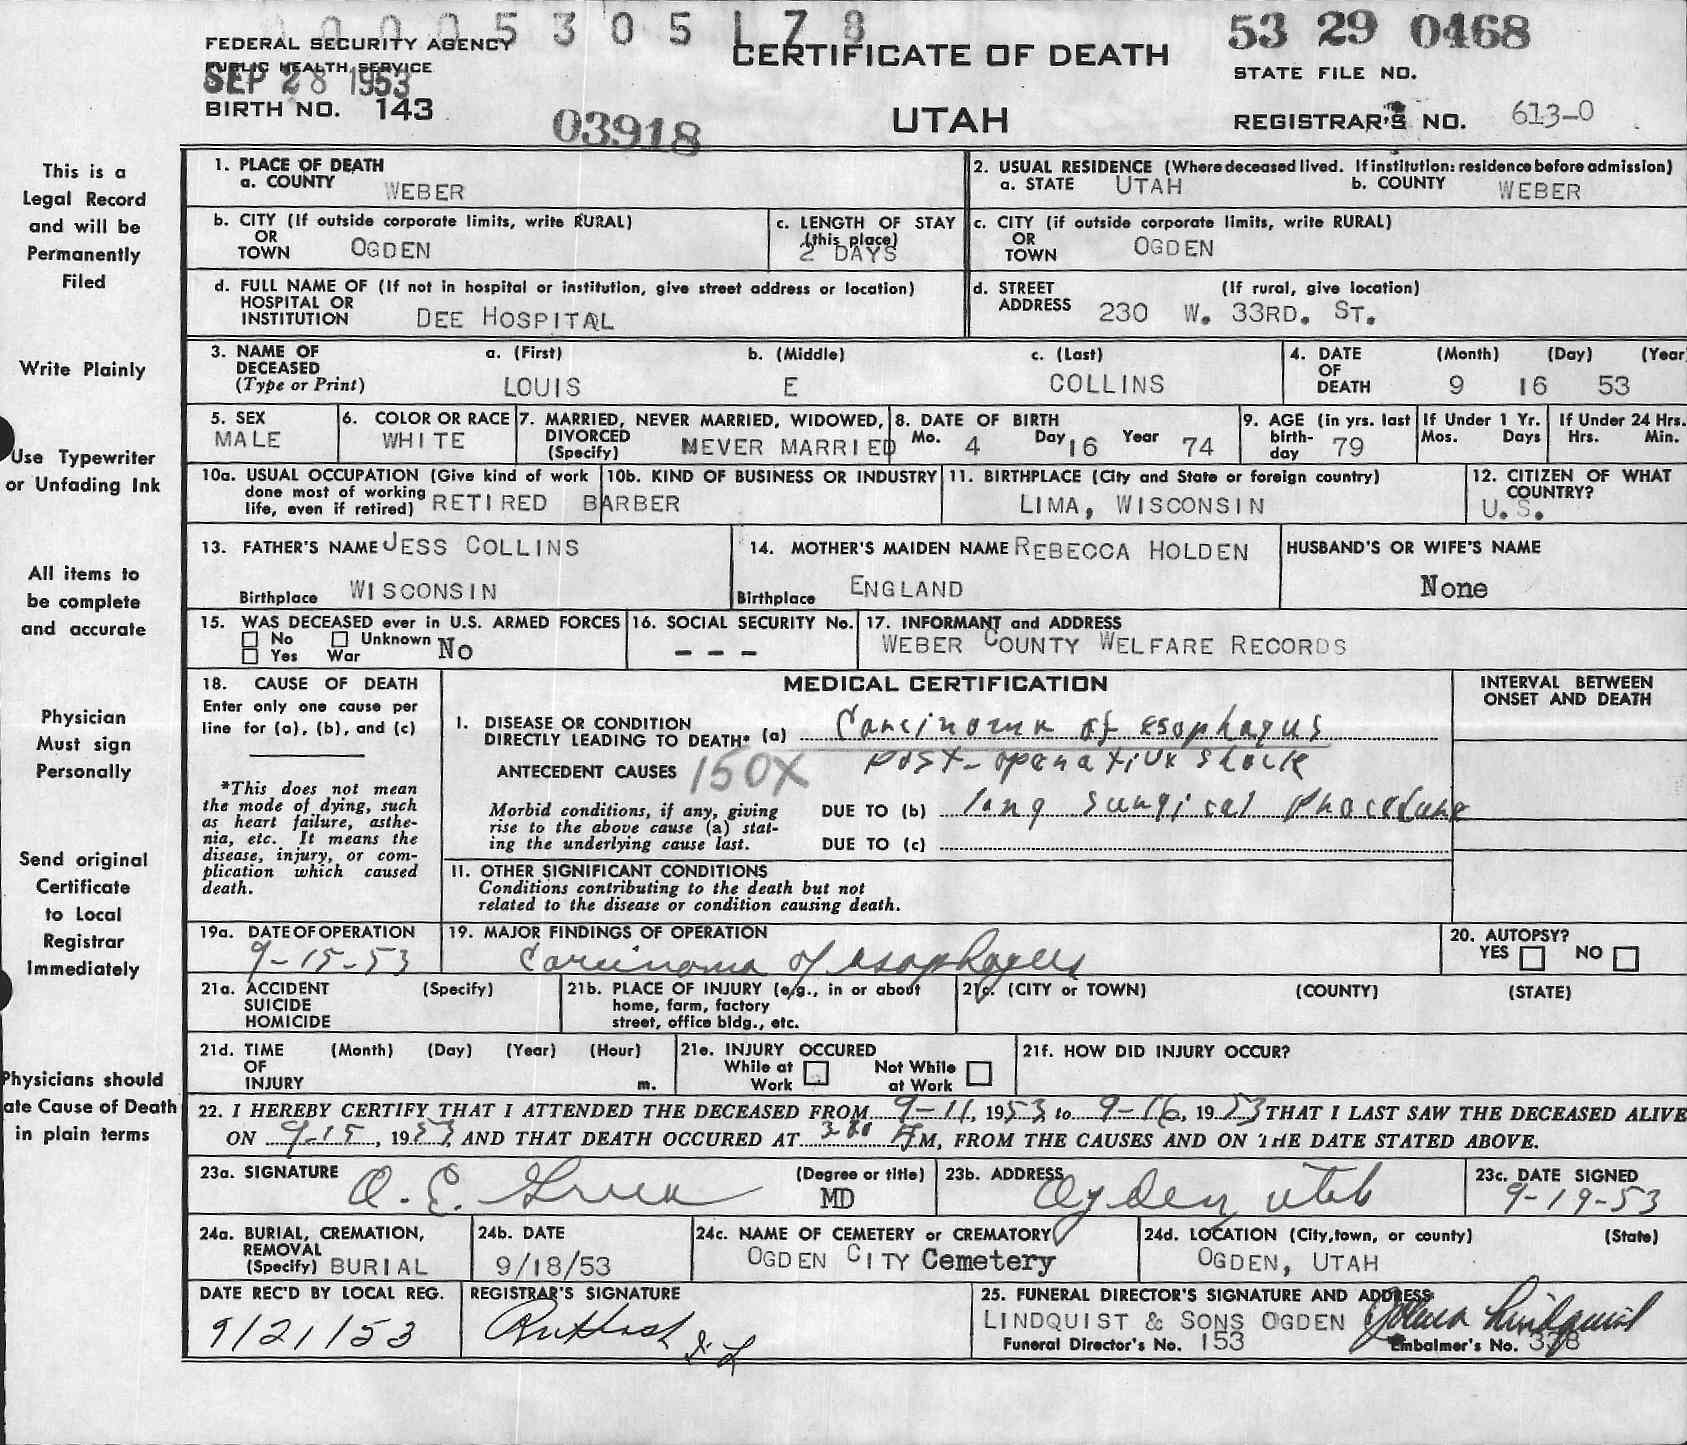 0 0 0 5 3 0 5 1 7 8
53 29 0468
FEDERAL SECURITY AGENCY
CERTIFICATE OF DEATH
PUBLIC HEALTH SERVICE
STATE FILE NO.
SEP 28 1953
BIRTH NO. 143
03918
UTAH
REGISTRAR'S NO. 613-0
This is a
Legal Record
and will be
Permanently
Filed
Write Plainly
Use Typewriter
or Unfading Ink
All items to
be complete
and accurate
Physician
Must sign
Personally
Send original
Certificate
to Local
Registrar
Immediately
Physicians should
ate Cause of Death
in plain terms
1. PLACE OF DEATH
a. COUNTY WEBER
2. USUAL RESIDENCE (Where deceased lived. If institution: residence before admission)
a. STATE UTAH b. COUNTY WEBER
b. CITY (If outside corporate limits, write RURAL)
OR
TOWN OGDEN
c. LENGTH OF STAY
(this place)
2 DAYS
c. CITY (if outside corporate limits, write RURAL)
OR
TOWN OGDEN
d. FULL NAME OF (If not in hospital or institution, give street address or location)
HOSPITAL OR
INSTITUTION DEE HOSPITAL
d. STREET (If rural, give location)
ADDRESS 230 W. 33RD. ST.
3. NAME OF a. (First) b. (Middle) c. (Last)
DECEASED
(Type or Print) LOUIS E COLLINS
4. DATE (Month) (Day) (Year
OF
DEATH 9 16 53
5. SEX
MALE
6. COLOR OR RACE
WHITE
7. MARRIED, NEVER MARRIED, WIDOWED,
DIVORCED
(Specify) MEVER MARRIED
8. DATE OF BIRTH
Mo. 4 Day 16 Year 74
9. AGE (in yrs. last
birth-
day 79
If Under 1 Yr.
Mos. Days
If Under 24 Hrs.
Hrs. Min.
10a. USUAL OCCUPATION (Give kind of work
done most of working
life, even if retired) RETIRED BARBER
10b. KIND OF BUSINESS OR INDUSTRY
11. BIRTHPLACE (City and State or foreign country)
LIMA, WISCONSIN
12. CITIZEN OF WHAT
COUNTRY?
U.S.
13. FATHER'S NAME JESS COLLINS
Birthplace WISCONSIN
14. MOTHER'S MAIDEN NAME REBECCA HOLDEN
Birthplace ENGLAND
HUSBAND'S OR WIFE'S NAME
None
15. WAS DECEASED ever in U.S. ARMED FORCES
No Unknown No
Yes War
16. SOCIAL SECURITY No.
- - -
17. INFORMANT and ADDRESS
WEBER COUNTY WELFARE RECORDS
18. CAUSE OF DEATH
Enter only one cause per
line for (a), (b), and (c)
*This does not mean
the mode of dying, such
as heart failure, asthe-
nia, etc. It means the
disease, injury, or com-
plication which caused
death.
MEDICAL CERTIFICATION
INTERVAL BETWEEN
ONSET AND DEATH
I. DISEASE OR CONDITION
DIRECTLY LEADING TO DEATH* (a) Carcinoma of esophagus
ANTECEDENT CAUSES 150X post-operative shock
Morbid conditions, if any, giving
rise to the above cause (a) stat-
ing the underlying cause last.
DUE TO (b) long surgical procedure
DUE TO (c)
11. OTHER SIGNIFICANT CONDITIONS
Conditions contributing to the death but not
related to the disease or condition causing death.
19a. DATE OF OPERATION
9-15-53
19. MAJOR FINDINGS OF OPERATION
Carcinoma of esophagus
20. AUTOPSY?
YES NO
21a. ACCIDENT (Specify)
SUICIDE
HOMICIDE
21b. PLACE OF INJURY (e.g., in or about
home, farm, factory
street, office bldg., etc.
21c. (CITY or TOWN) (COUNTY) (STATE)
21d. TIME (Month) (Day) (Year) (Hour)
OF
INJURY m.
21e. INJURY OCCURED
While at Not While
Work at Work
21f. HOW DID INJURY OCCUR?
22. I HEREBY CERTIFY THAT I ATTENDED THE DECEASED FROM 9-11, 1953 to 9-16, 1953 THAT I LAST SAW THE DECEASED ALIVE
ON 9-15, 1953, AND THAT DEATH OCCURED AT M, FROM THE CAUSES AND ON THE DATE STATED ABOVE.
23a. SIGNATURE (Degree or title)
O. E. Grua MD
23b. ADDRESS
Ogden, Utah
23c. DATE SIGNED
9-19-53
24a. BURIAL, CREMATION,
REMOVAL
(Specify) BURIAL
24b. DATE
9/18/53
24c. NAME OF CEMETERY or CREMATORY
OGDEN CITY Cemetery
24d. LOCATION (City, town, or county) (State)
OGDEN, UTAH
DATE REC'D BY LOCAL REG.
9/21/53
REGISTRAR'S SIGNATURE
25. FUNERAL DIRECTOR'S SIGNATURE AND ADDRESS
LINDQUIST & SONS OGDEN Lindquist
Funeral Director's No. 153 Embalmer's No. 338